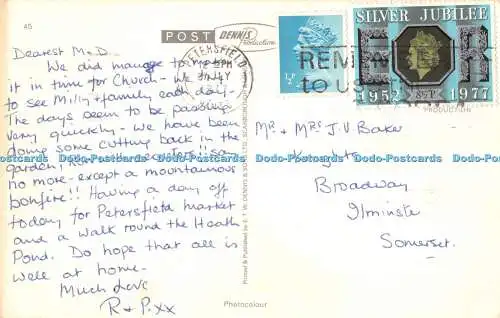 45
POST
DENNIS
Production
PETERSFIELD
SILVER JUBILEE
1952 1977
REMEMBER
to US
½P
PRODUCTION
Dearest M & D.
We did manage to make
it in time for Church - We
to see Milly & family each day -
The days seem to be passing
very quickly - we have been
doing some cutting back in the
garden
no more - except a mountainous
bonfire!! Having a day off
today for Petersfield market
and a walk round the Heath
Pond. Do hope that all is
well at home -
Much Love
R & P. xx
Mr & Mrs J.V Baker
Broadway
Ilminster
Somerset.
Photocolour
Dodo-Postcards Dodo-Postcards Dodo-Postcards Dodo-Postcards Dodo-Postcards